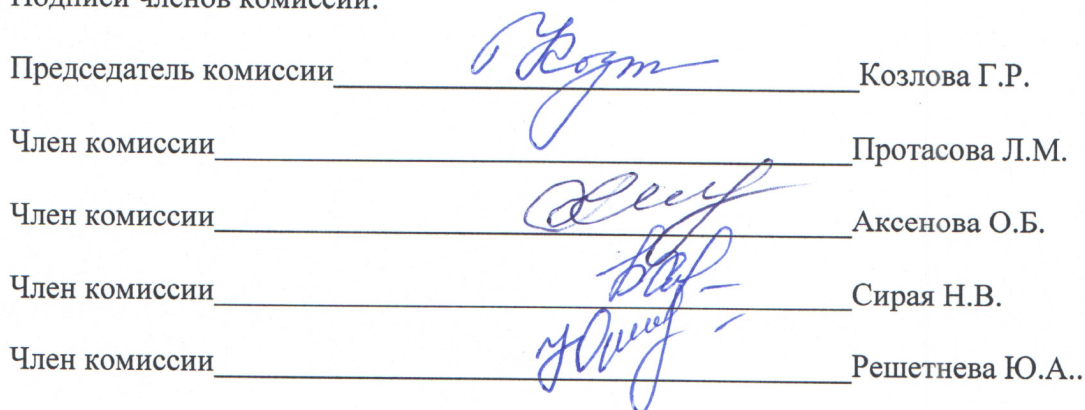 Подписи членов комиссии:
Председатель комиссии Козлова Г.Р.
Член комиссии Протасова Л.М.
Член комиссии Аксенова О.Б.
Член комиссии Сирая Н.В.
Член комиссии Решетнева Ю.А..